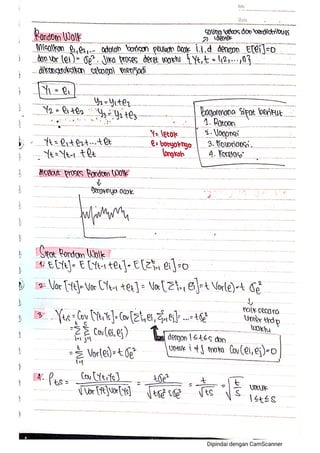 No.
Date.
Random Walk
saling bebas dan berdistribusi identik
Misalkan e₁, e₂, ... adalah barisan peubah acak i.i.d dengan E[ei]=0
dan var (ei) = σe². Jika proses deret waktu {Yt, t = 1,2,...,n}
dikonstruksikan sebagai menjadi
Y₁ = e₁
y₂ = y₁+e₂
Y₂ = e₁+e₂ y₃ = y₂+e₃
Yt = e₁+e₂+...+et
Yt = Yt-1 + et
Y = letak
e = banyaknya langkah
Bagaimana Sifat berikut
1. Rataan
2. Variansi
3. Kovariansi
4. Korelasi
disebut proses Random Walk
↓
geraknya acak
Sifat Random Walk
1. E[Yt] = E[Yt-1 + et] = E[Σᵗi=1 ei] = 0
2. Var [Yt] = Var [Yt-1 + et] = Var [Σᵗi=1 ei] = t Var(e) = t σe²
naik secara linear thdp waktu
3. γt,s = Cov [Yt,Ys] = Cov [Σᵗi=1 ei, Σˢj=1 ej] ... = tσe²
= Σᵗi=1 Σˢj=1 Cov (ei, ej)
dengan 1≤t≤s dan
untuk i ≠ j maka Cov (ei, ej) = 0
= Σᵗi=1 Var(ei) = t σe²
4. ρts = Cov [Yt,Ys] / √Var [Yt] Var [Ys] = tσe² / √tσe² sσe² = t / √ts = √t/s untuk
1≤t≤s
Dipindai dengan CamScanner